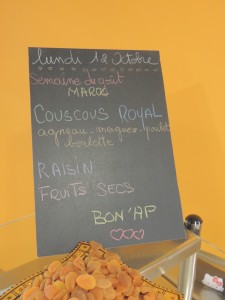 lundi 12 Octobre
Semaine du goût
MAROC
COUSCOUS ROYAL
agneau - maguez - poulet
boulette
RAISIN
FRUITS SECS
BON'AP